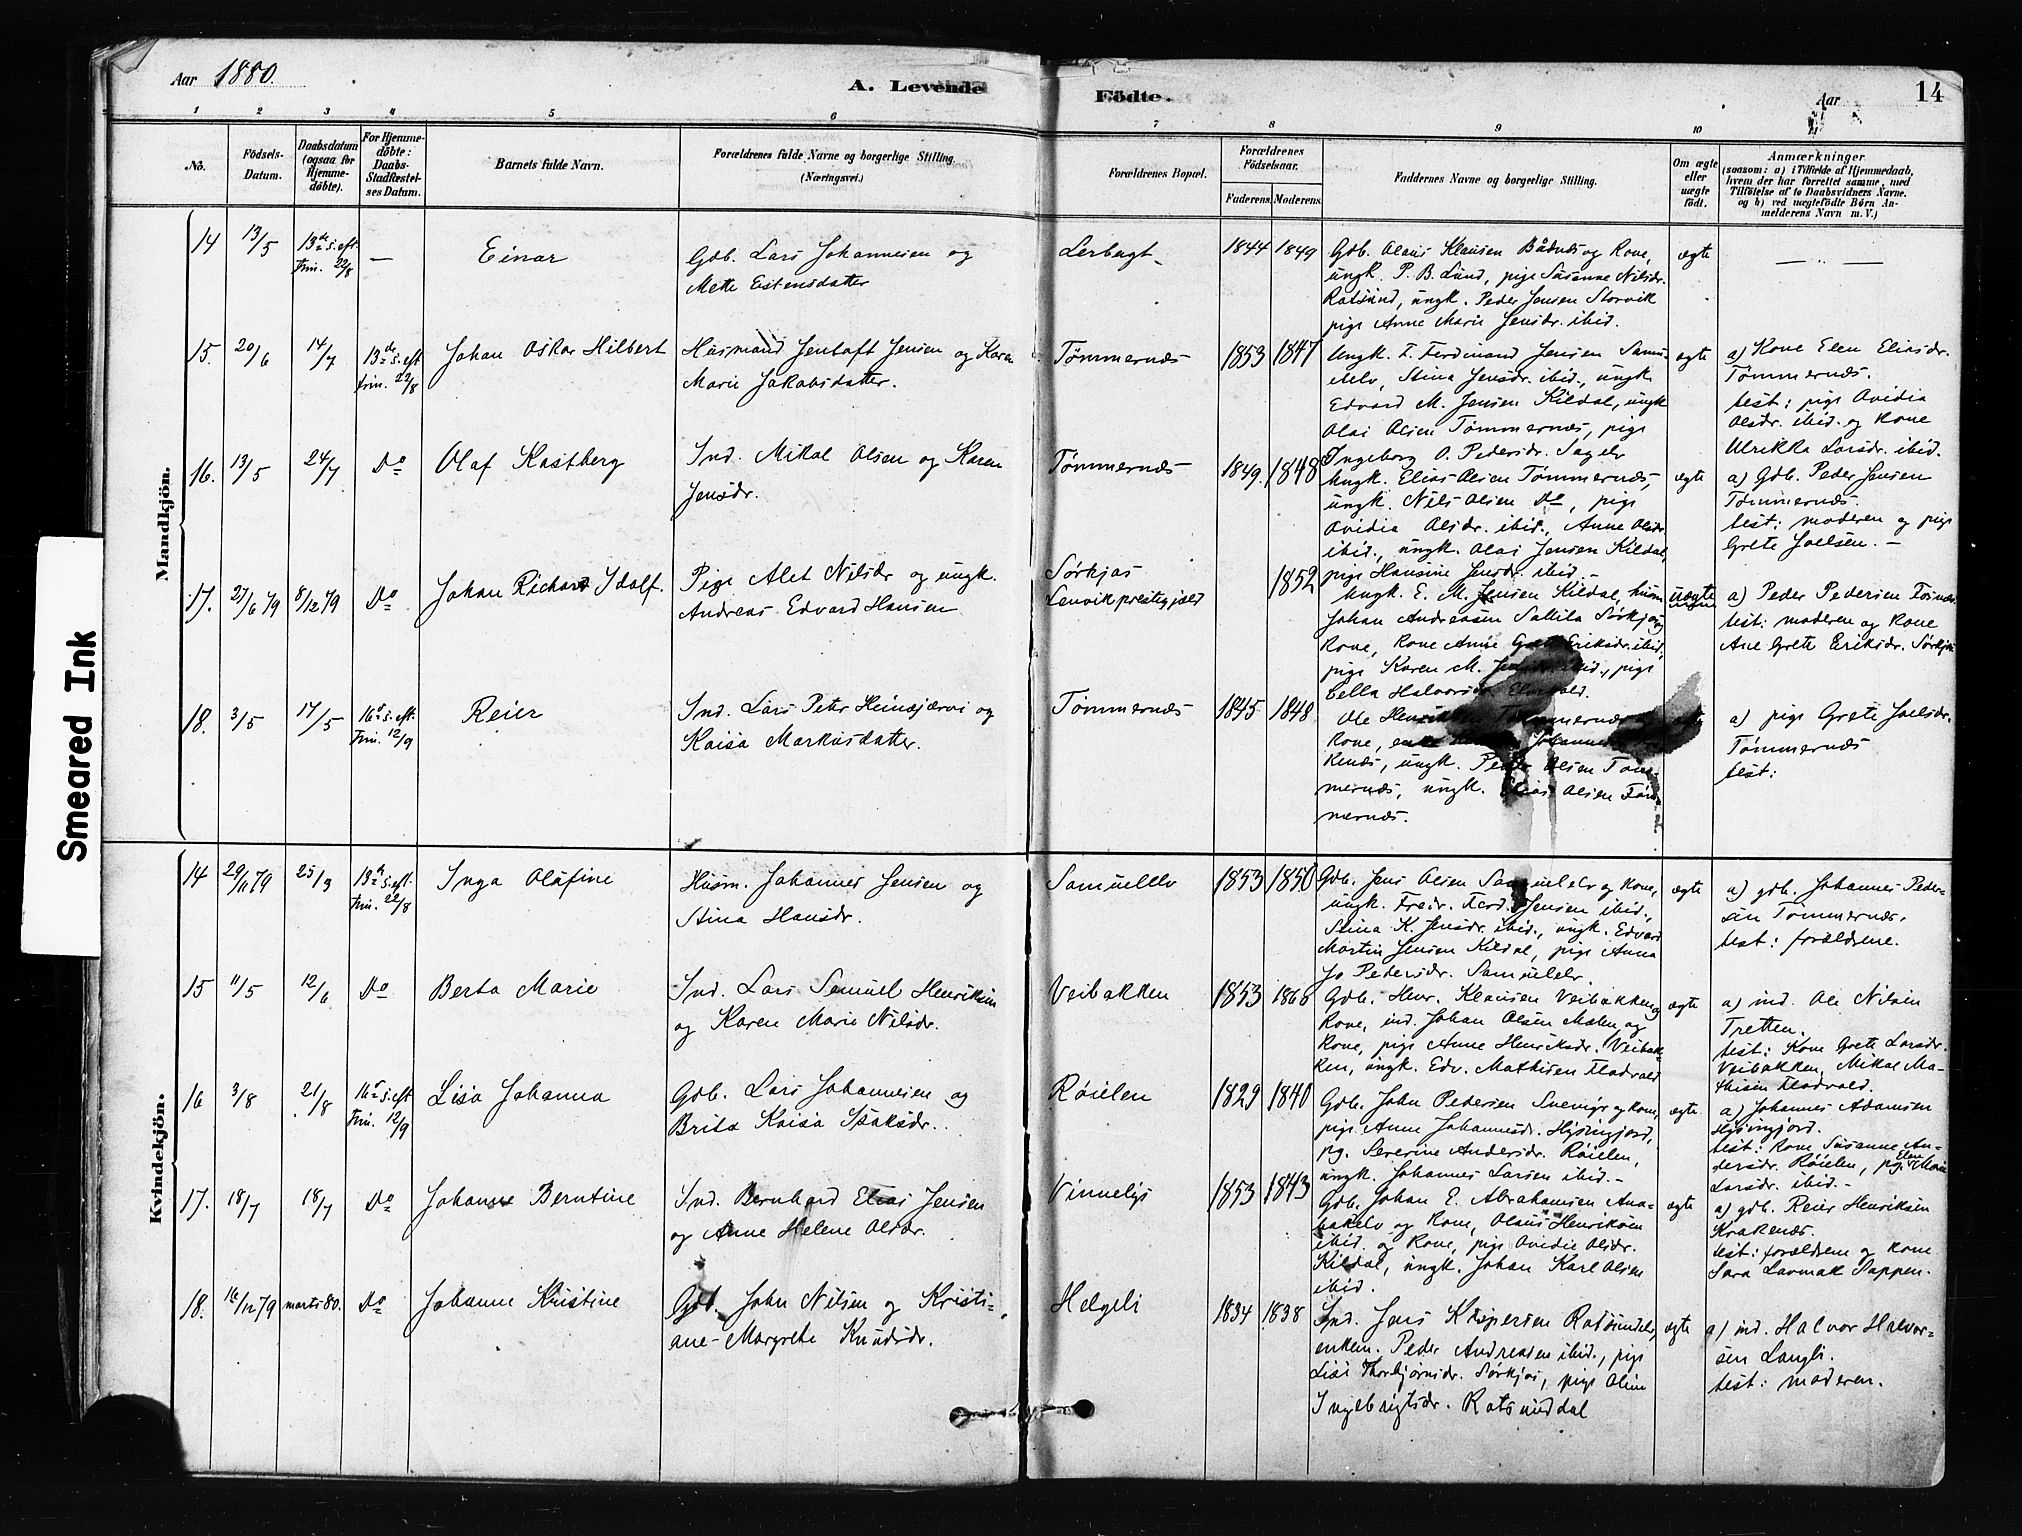 Aar 1880.
A. Levende Födte.
Aar
14
1 2 3 4 5 6 7 8 9 10
No.
Födsels-Datum.
Daabsdatum (ogsaa for Hjemme-döbte).
For Hjemme-döbte: Daabs-Stadfæstel-ses Datum.
Barnets fulde Navn.
Forældrenes fulde Navne og borgerlige Stilling. (Næringsvei.)
Forældrenes Bopæl.
Forældrenes Födselsaar.
Faderens. Moderens.
Faddernes Navne og borgerlige Stilling.
Om ægte eller uægte födt.
Anmærkninger
(saasom: a) i Tilfælde af Hjemmedaab,
hvem der har forrettet samme, med
Tilföielse af to Daabsvidners Navne.
og b) ved uægtefödte Börn An-
melderens Navn m. V.)
Mandkjön.
14 13/5 13de s. eft. Trin. 22/8 — Einar
Gdb. Lars Johannesen og
Mette Estensdatter
Lerbugt 1844 1849
Gdb. Olaus Klausen Bådnes og Kone,
ungk. P. B. Lund, pige Susanne Nilsdr.
Rotsund, ungk. Peder Jensen Storvik
pige Anne Marie Jensdr. ibid.
ægte
— " —
15. 20/6 14/7 13de s. eft. Trin. 22/8 Johan Oskar Hilbert
Husmand Jentoft Jensen og Karen
Marie Jakobsdatter.
Tømmernæs 1853 1847
Ungk. F. Ferdinand Jensen Samu-
elelv, Stina Jensdr. ibid., ungk.
Edvard M. Jensen Kildal, ungk
Olai Olsen Tømmernæs, pige
Ingeborg O. Pedersdr. Sagelv
ægte
a) Kone Elen Eliasdr.
Tømmernæs.
test: pige Ovidia
Olsdr. ibid. og Kone
Ulrikka Larsdr. ibid.
16. 13/5 24/7 Do Olaf Kastberg
Ind. Mikal Olsen og Karen
Jensdr.
Tømmernæs 1849. 1848
Ungk. Elias Olsen Tømmernæs,
ungk. Nils Olsen Do, pige
Ovidia Olsdr. ibid., Anne Olsdr
ibid., ungk. Olai Jensen Kildal,
pige Hansine Jensdr. ibid.
ægte
a) Gdb. Peder Jensen
Tømmernæs.
test: moderen og pige
Grete Joelsen. —
17. 27/6 79 8/12 79 Do Johan Richard Idolf.
Pige Alet Nilsdr og ungk.
Andreas Edvard Hansen
Sørkjos
Lenvik præstegjæld 1852
Ungk. E. M. Jensen Kildal, husm
Johan Andreasen Sørkjos og
Kone, Kone Anne Eriksdr. ibid,
pige Karen M. ibid., pige
Cella Halvorsdr.
uægte
a) Peder Pedersen
test: moderen og Kone
Ane Grete Eriksdr. Sørkjos
18. 3/5 17/5 16de s. eft. Trin. 12/9 Reier
Ind. Lars Peter Heinäjærvi og
Kaisa Markusdatter.
Tømmernæs 1845 1848
Ole Tømmernæs
Kone,
kenes, ungk. Peder Olsen Tøm-
mernæs, ungk. Elias Olsen Tøm-
mernæs.
a) pige Grete Joelsdr.
Tømmernæs
test:
Kvindekjön.
14 29/11 79 25/3 13de s. eft. Trin. 22/8 Inga Olufine
Husm. Johannes Jensen og
Stina Hansdr.
Samuelelv 1853 1850
Gdb. Jens Olsen Samuelelv og Kone,
ungk. Fredr. Ferd. Jensen ibid.,
Stina K. Jensdr. ibid., ungk. Edvard
Martin Jensen Kildal, pige Anna
Jo Pedersdr. Samuelelv.
ægte
a) gdb. Johannes Peder-
sen Tømmernæs.
test: forældrene.
15 11/5 12/6 Do Berta Marie
Ind. Lars Samuel Henriksen
og Karen Marie Nilsdr.
Veibakken 1853 1866
Gdb. Henr. Klausen Veibakken og
Kone, ind. Johan Olsen Molen og
Kone, pige Anne Henriksdr. Veibak-
ken, ungk. Edv. Mathisen Fladvold
ægte
a) ind. Ole Nilsen
Tretten.
test: Kone Grete Larsdr.
Veibakken, Mikal Ma-
thisen Fladvold.
16 3/8 21/8 16de s. eft Trin. 12/9 Lisa Johanna
Gdb. Lars Johannesen og
Brita Kaisa Isaksdr.
Røielen 1829 1840
Gdb. John Pedersen og Kone,
pige Anne Johannesdr. Hysingjord,
pg. Severine Andersdr. Røielen,
ungk. Johannes Larsen ibid. -
ægte
a) Johannes Adamsen
Hysingjord.
test: Kone Susanne An-
dersdr. Røielen, pg. Elen Marie
Larsdr. ibid -
17. 18/7 18/7 Do Johanne Berntine
Ind. Bernhard Elias Jensen
og Anne Helene Olsdr.
Vinnelys 1853 1843
Gdb. Johan E. Abrahamsen Ana-
bakelv og Kone, Olaus Henriksen
ibid. og Kone, pige Ovidie Olsdr.
Kildal, ungk. Johan Karl Olsen
ibid.
ægte
a) gdb. Reier Henriksen
Krakenæs.
test: forældrene og Kone
Sara
18. 16/12 79 marts 80. Do Johanne Kristine
Gdb. John Nilsen og Kristi-
ane Margrete Knudsdr.
Helgeli 1834 1838
Ind. Jens Kaspersen Rotsundelv,
enkem. Peder Andreasen ibid., pige
Lise Thorbjørnsdr. Sørkjos, pige Oline
Ingebrigtsdr. Rotsunddal
ægte
a) ind. Halvor Halvor-
sen Langli.
test: moderen.
Smeared Ink